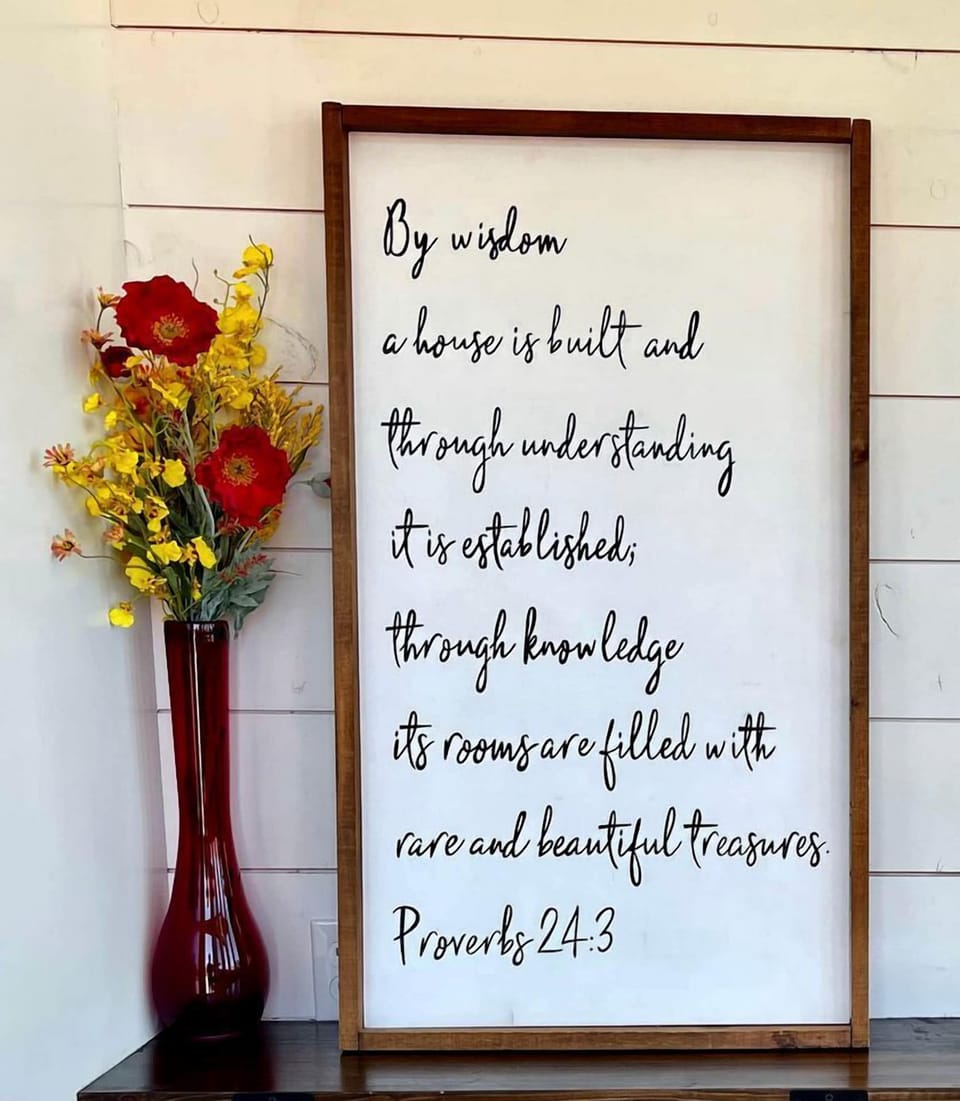 By wisdom
a house is built and
through understanding
it is established;
through knowledge
its rooms are filled with
rare and beautiful treasures.
Proverbs 24:3